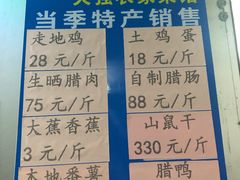 当季特产销售
走地鸡
28元/斤
土鸡蛋
18元/斤
生晒腊肉
75元/斤
自制腊肠
88元/斤
大蕉香蕉
3元/斤
山鼠干
330元/斤
本地番薯
腊鸭